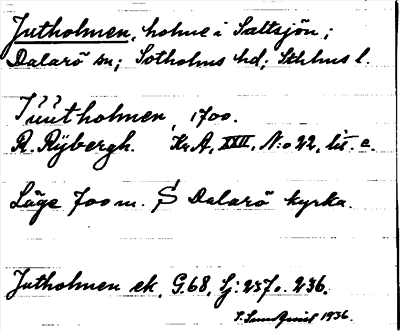 Jutholmen, holme i Saltsjön;
Dalarö sn; Sotholms hd; Sthlms l.
Jüütholmen, 1700.
R. Rÿbergh. Kr A, XXII, N:o 22, lit. c.
Läge 700 m. S Dalarö kyrka.
Jutholmen ek. G. 68, Sj: 257 o. 236.
S. Lundquist 1936.